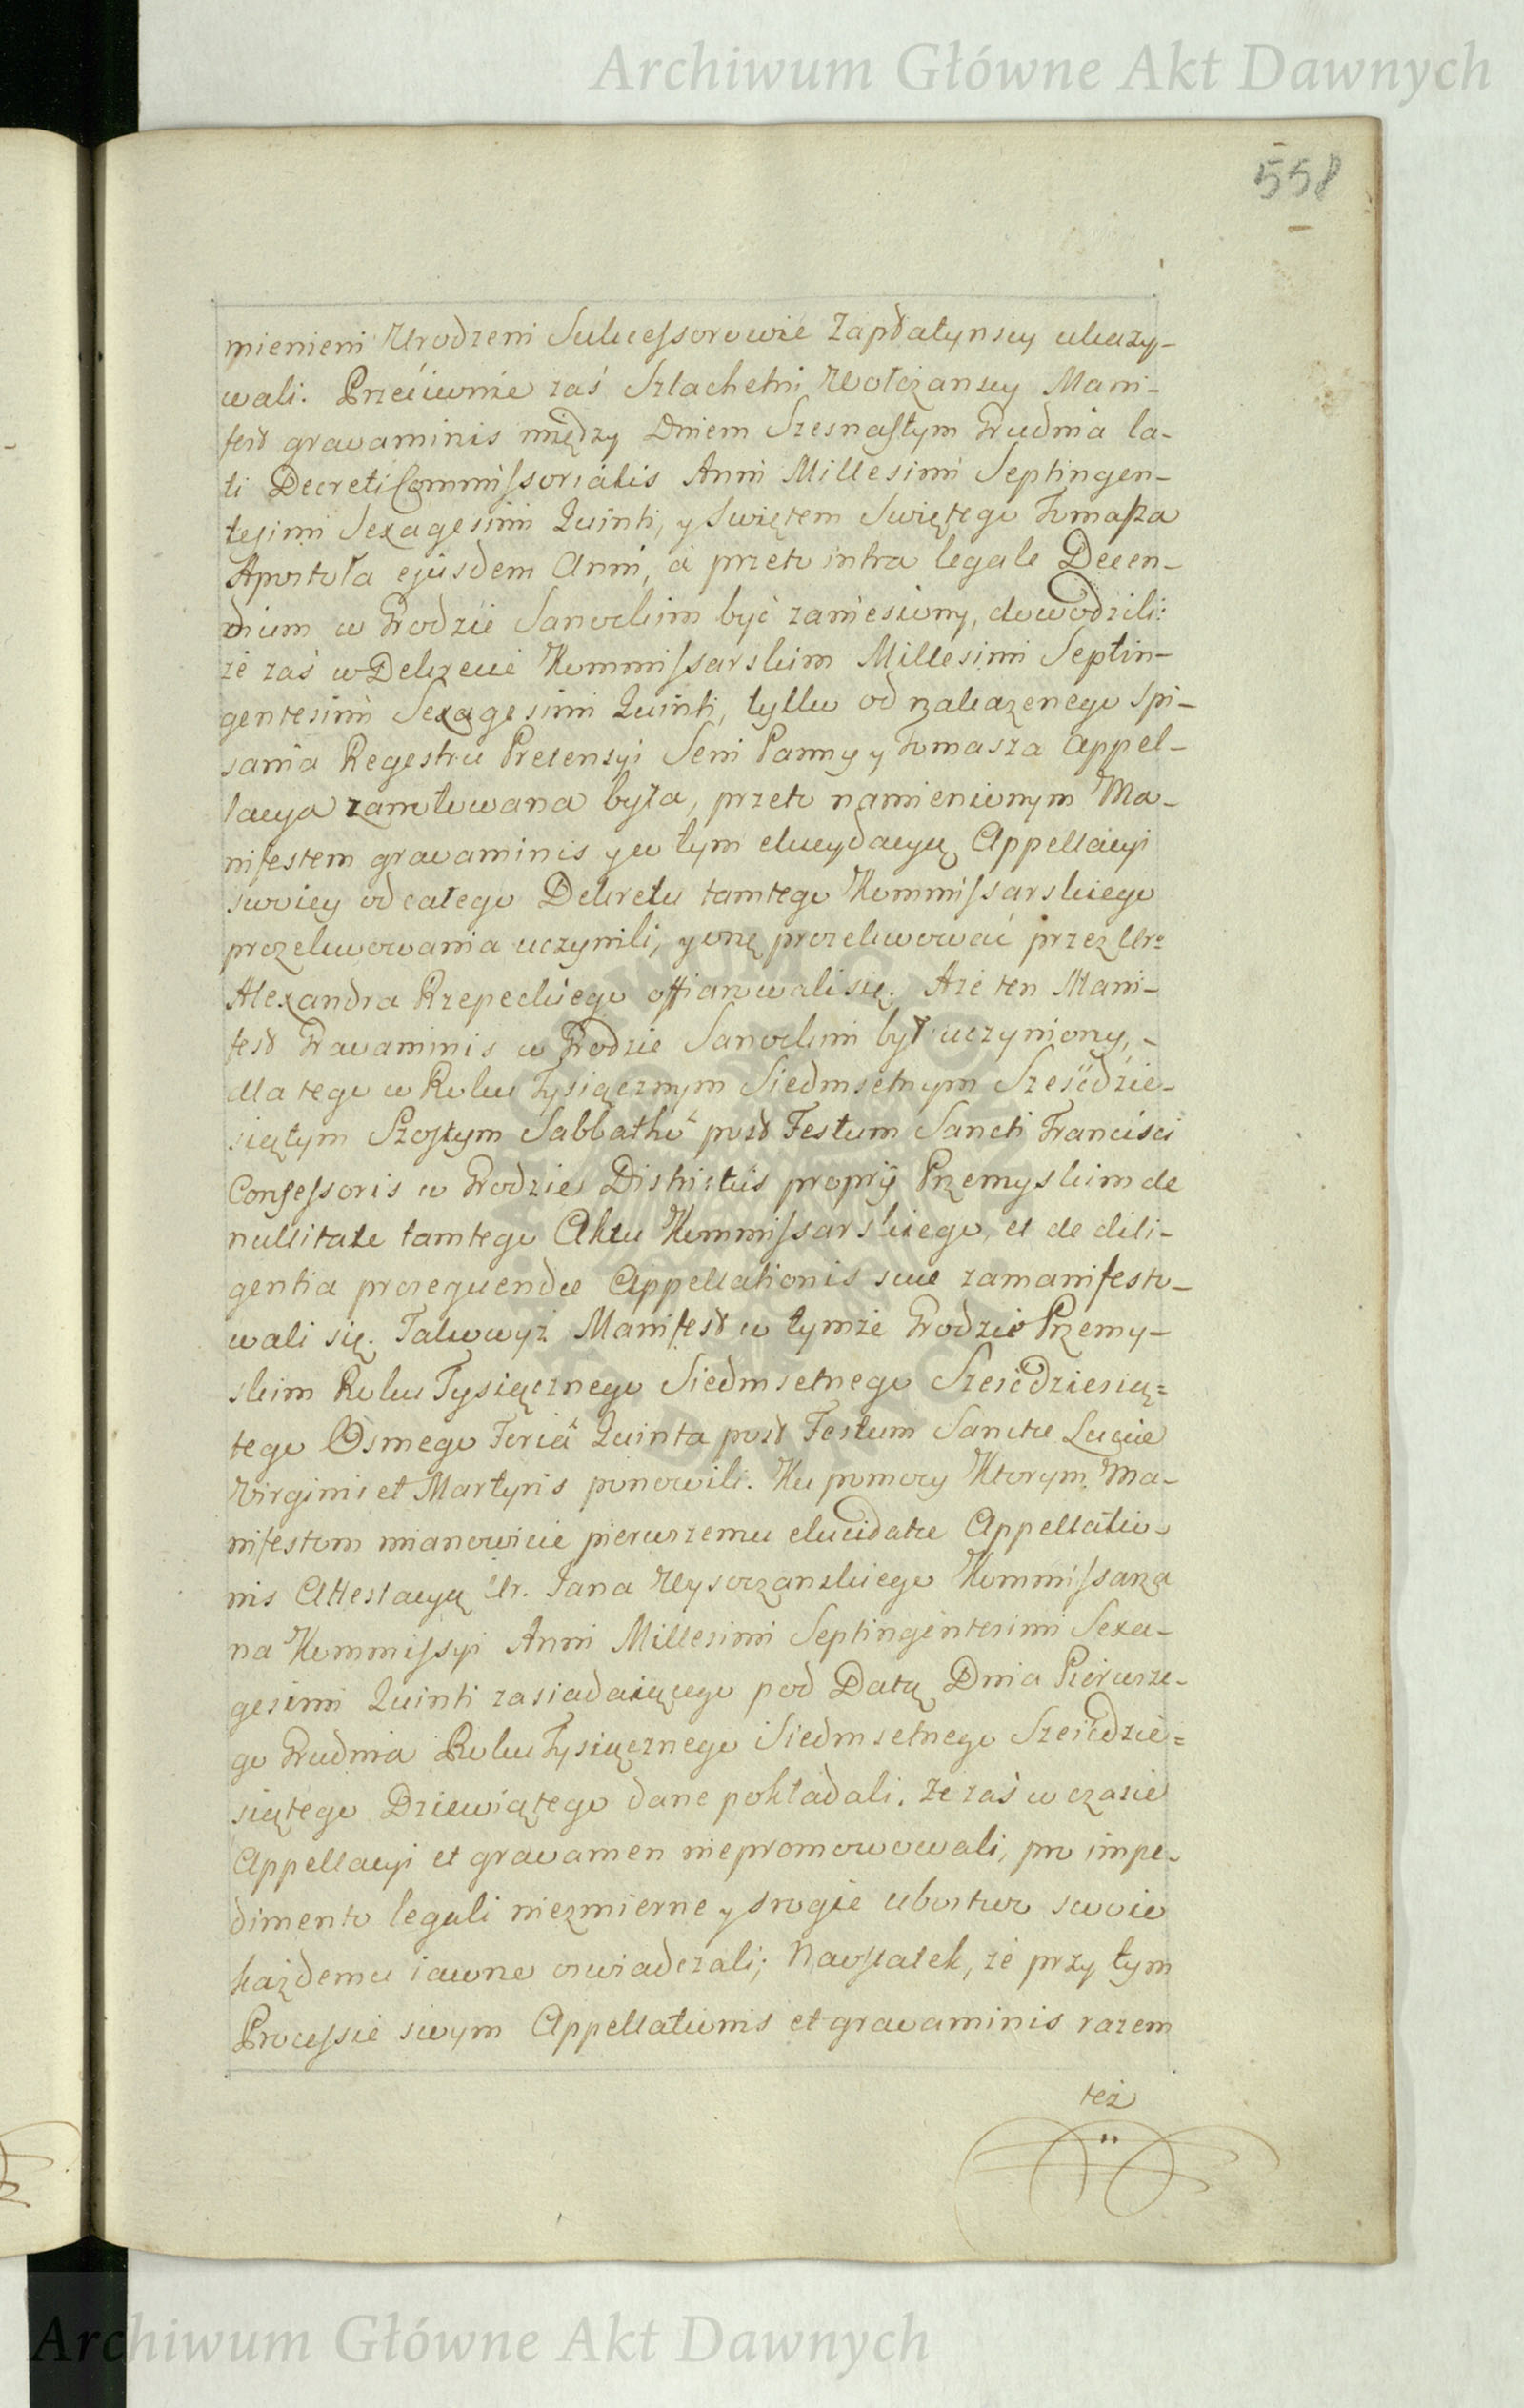 Archiwum Główne Akt Dawnych
558
mienieni Urodzeni Sukcessorowie Zapłatynscy ukazy-
wali. Przeciwnie zaś Szlachetni Wołczanscy Mani-
fest gravaminis między Dniem Szesnastym Grudnia la-
ti Decreti Commissorialis Anni Millesimi Septingen-
tesimi Sexagesimi Quinti, y Swiętem Swiętego Tomasza
Apostoła ejusdem Anni, a przeto intra legale Decen-
dium w Grodzie Sanockim być zaniesiony, dowodzili:
że zaś w Dekrecie Kommissarskim Millesimi Septin-
gentesimi Sexagesimi Quinti, tylko od nakazenego Spi-
sania Regestru Pretensyi Seni Panny y Tomasza Appel-
lacya zanotowana była, przeto namienionym Ma-
nifestem gravaminis y w tym elucydacyą Appellacyi
swoiey od całego Dekretu tamtego Kommissarskiego
prozekwowania uczynili, y onę prozekwować przez Ur:
Alexandra Rzepeckiego offiarowali się. A że ten Mani-
fest Gravaminis w Grodzie Sanockim był uczyniony, -
dla tego w Roku Tysiącznym Siedmsetnym Sześćdzie-
siątym Szostym Sabbatho post Festum Sancti Francisci
Confessoris w Grodzie Districtus proprij Przemyskim de
nullitate tamtego Aktu Kommissarskiego, et de dili-
gentia prosequendæ Appellationis suæ zamanifesto-
wali się. Takowyż Manifest w tymże Grodzie Przemy-
skim Roku Tysiącznego Siedmsetnego Sześćdziesią=
tego Osmego Feriâ Quinta post Festum Sanctæ Luciæ
Virginis et Martyris ponowili. Ku pomocy Ktorym Ma-
nifestom mianowicie pierwszemu elucidatæ Appellatio-
nis Attestacyą Ur. Jana Wysoczanskiego Kommissarza
na Kommissyi Anni Millesimi Septingentesimi Sexa-
gesimi Quinti zasiadaiącego pod Datą Dnia Pierwsze-
go Grudnia Roku Tysiącznego Siedmsetnego Sześćdzie=
siątego Dziewiątego dane pokładali. Że zaś w czasie
Appellacyi et gravamen niepromowowali, pro impe-
dimento legali niezmierne y srogie ubostwo swoie
każdemu iawne oswiadczali; Naostatek, że przy tym
Processie swym Appellationis et gravaminis razem
też
Archiwum Główne Akt Dawnych